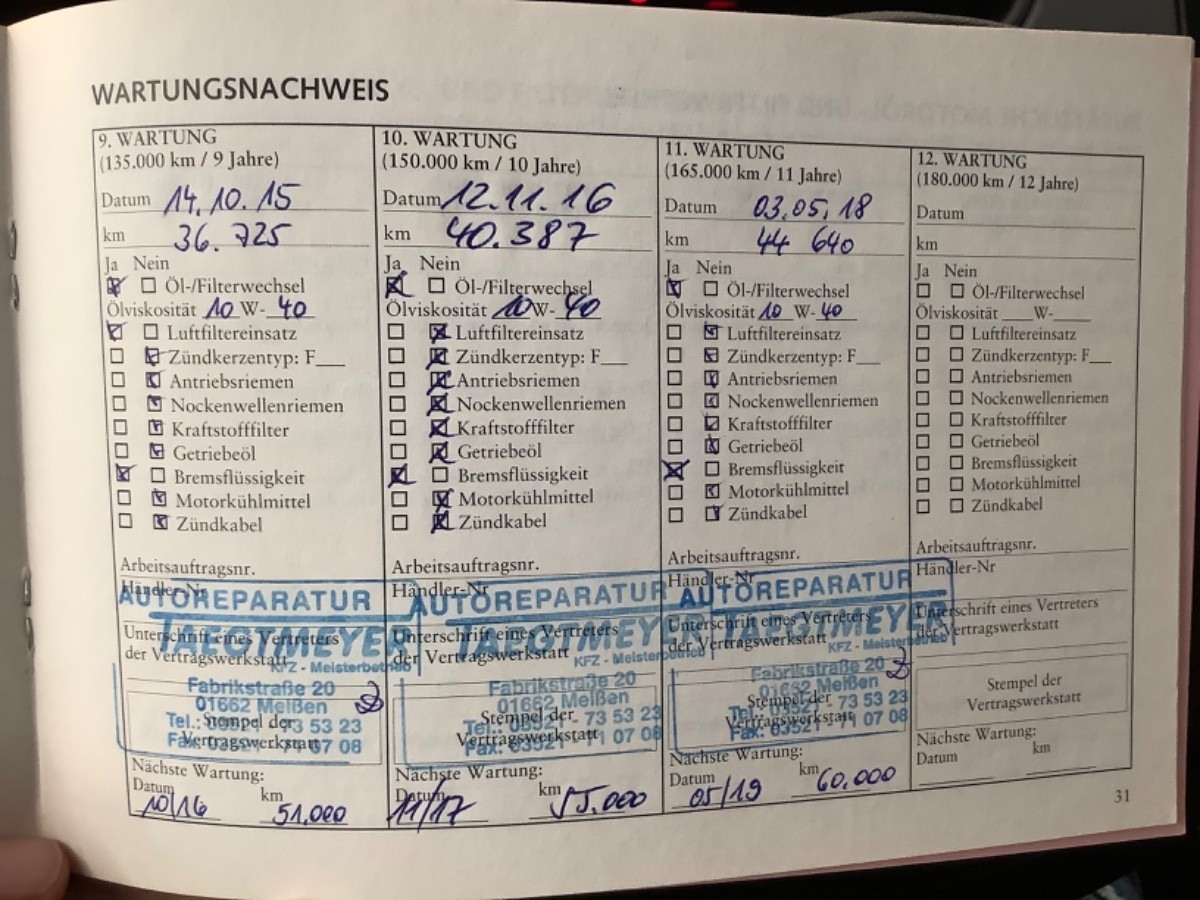 WARTUNGSNACHWEIS
9. WARTUNG
(135.000 km / 9 Jahre)
Datum 14.10.15
km 36.725
Ja Nein
Öl-/Filterwechsel
Ölviskosität 10 W- 40
Luftfiltereinsatz
Zündkerzentyp: F___
Antriebsriemen
Nockenwellenriemen
Kraftstofffilter
Getriebeöl
Bremsflüssigkeit
Motorkühlmittel
Zündkabel
Arbeitsauftragsnr.
Händler-Nr
AUTOREPARATUR
TAEGTMEYER
Unterschrift eines Vertreters
der Vertragswerkstatt
KFZ - Meisterbetrieb
Fabrikstraße 20
01662 Meißen
Tel.: 03521 - 73 53 23
Stempel der
Fax: 03521 - 71 07 08
Vertragswerkstatt
Nächste Wartung:
Datum km
10/16 51.000
10. WARTUNG
(150.000 km / 10 Jahre)
Datum 12.11.16
km 40.387
Ja Nein
Öl-/Filterwechsel
Ölviskosität 10 W- 40
Luftfiltereinsatz
Zündkerzentyp: F___
Antriebsriemen
Nockenwellenriemen
Kraftstofffilter
Getriebeöl
Bremsflüssigkeit
Motorkühlmittel
Zündkabel
Arbeitsauftragsnr.
Händler-Nr
AUTOREPARATUR
TAEGTMEYER
Unterschrift eines Vertreters
der Vertragswerkstatt
KFZ - Meisterbetrieb
Fabrikstraße 20
01662 Meißen
Stempel der
Tel.: 03521 - 73 53 23
Vertragswerkstatt
Fax: 03521 - 71 07 08
Nächste Wartung:
Datum km
11/17 55.000
11. WARTUNG
(165.000 km / 11 Jahre)
Datum 03.05.18
km 44 640
Ja Nein
Öl-/Filterwechsel
Ölviskosität 10 W- 40
Luftfiltereinsatz
Zündkerzentyp: F___
Antriebsriemen
Nockenwellenriemen
Kraftstofffilter
Getriebeöl
Bremsflüssigkeit
Motorkühlmittel
Zündkabel
Arbeitsauftragsnr.
Händler-Nr
AUTOREPARATUR
TAEGTMEYER
Unterschrift eines Vertreters
der Vertragswerkstatt
KFZ - Meisterbetrieb
Fabrikstraße 20
01662 Meißen
Stempel der
Tel.: 03521 - 73 53 23
Vertragswerkstatt
Fax: 03521 - 71 07 08
Nächste Wartung:
Datum km
05/19 60.000
12. WARTUNG
(180.000 km / 12 Jahre)
Datum
km
Ja Nein
Öl-/Filterwechsel
Ölviskosität ___W-___
Luftfiltereinsatz
Zündkerzentyp: F___
Antriebsriemen
Nockenwellenriemen
Kraftstofffilter
Getriebeöl
Bremsflüssigkeit
Motorkühlmittel
Zündkabel
Arbeitsauftragsnr.
Händler-Nr
Unterschrift eines Vertreters
der Vertragswerkstatt
Stempel der
Vertragswerkstatt
Nächste Wartung:
Datum km
31